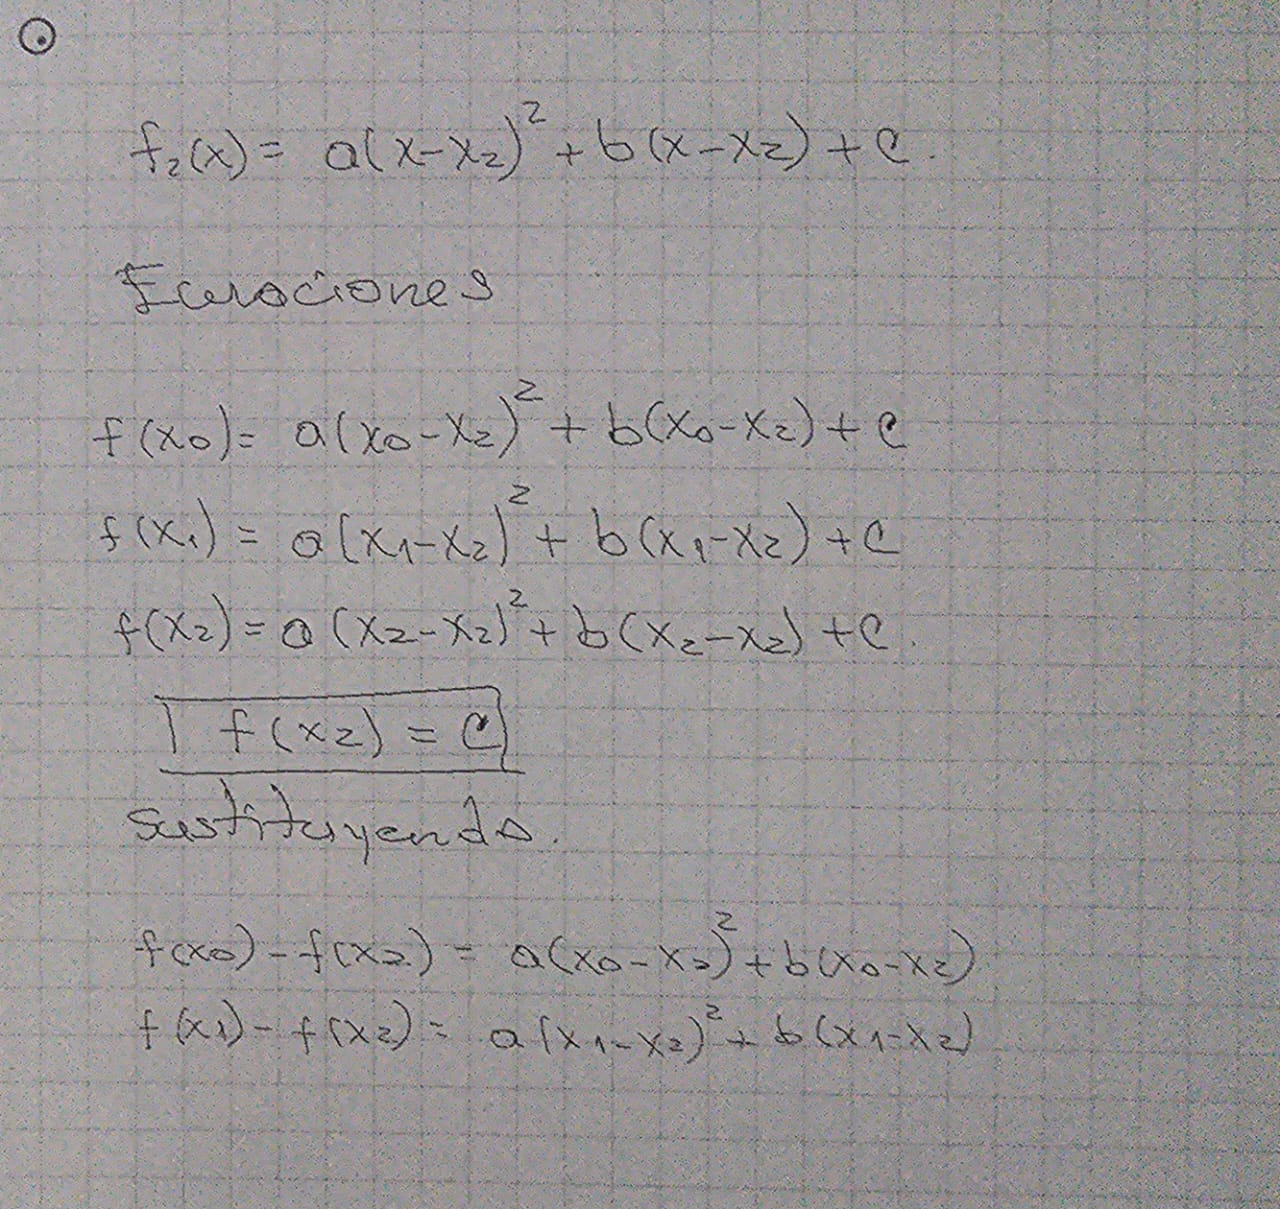 f₂(x) = a(x-x₂)² + b(x-x₂) + c.
Ecuaciones
f(x₀) = a(x₀-x₂)² + b(x₀-x₂) + c
f(x₁) = a(x₁-x₂)² + b(x₁-x₂) + c
f(x₂) = a(x₂-x₂)² + b(x₂-x₂) + c.
f(x₂) = c
sustituyendo.
f(x₀) - f(x₂) = a(x₀-x₂)² + b(x₀-x₂)
f(x₁) - f(x₂) = a(x₁-x₂)² + b(x₁-x₂)